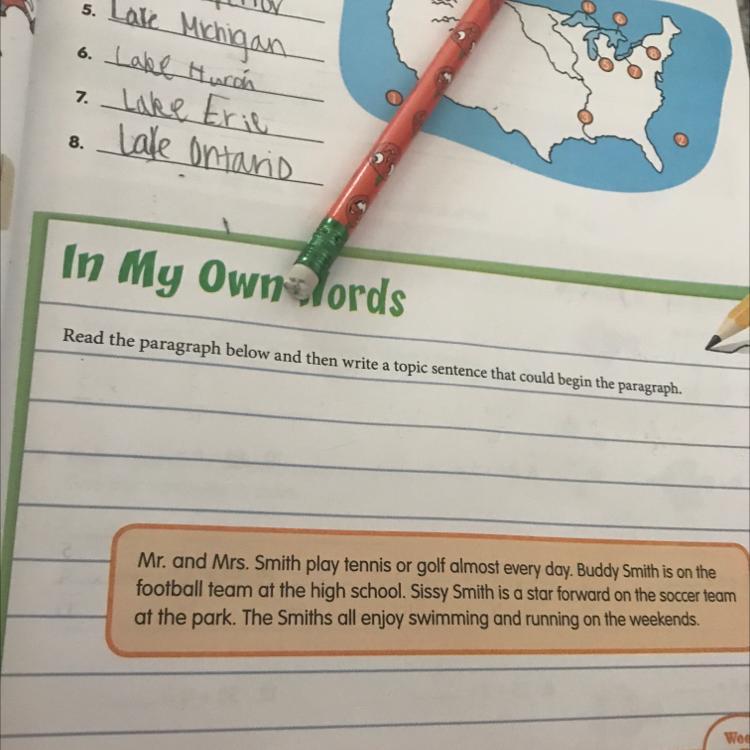 5. Lake Michigan
6. Lake Huron
7. Lake Erie
8. Lake Ontario
1
2
3
4
5
6
7
8
In My Own Words
Read the paragraph below and then write a topic sentence that could begin the paragraph.
Mr. and Mrs. Smith play tennis or golf almost every day. Buddy Smith is on the
football team at the high school. Sissy Smith is a star forward on the soccer team
at the park. The Smiths all enjoy swimming and running on the weekends.